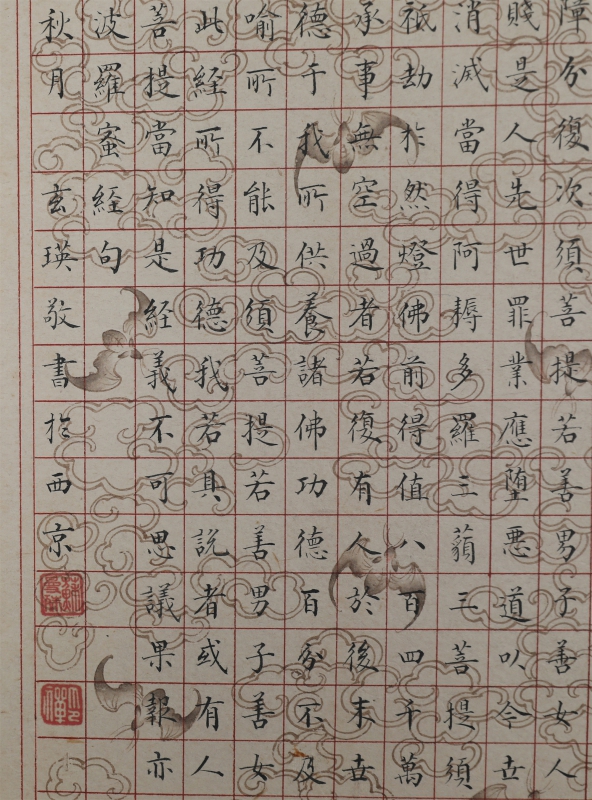 障分復次須菩提若善男子善女人
賤是人先世罪業應堕惡道以今世
消滅當得阿耨多羅三藐三菩提須
祇劫於然燈佛前得值八百四千萬
承事無空過者若復有人於後末世
德于我所供養諸佛功德百分不及
喻所不能及須菩提若善男子善女
此経所得功德我若具説者或有人
菩提當知是経義不可思議果報亦
波羅蜜経句
秋月玄瑛敬書於西京